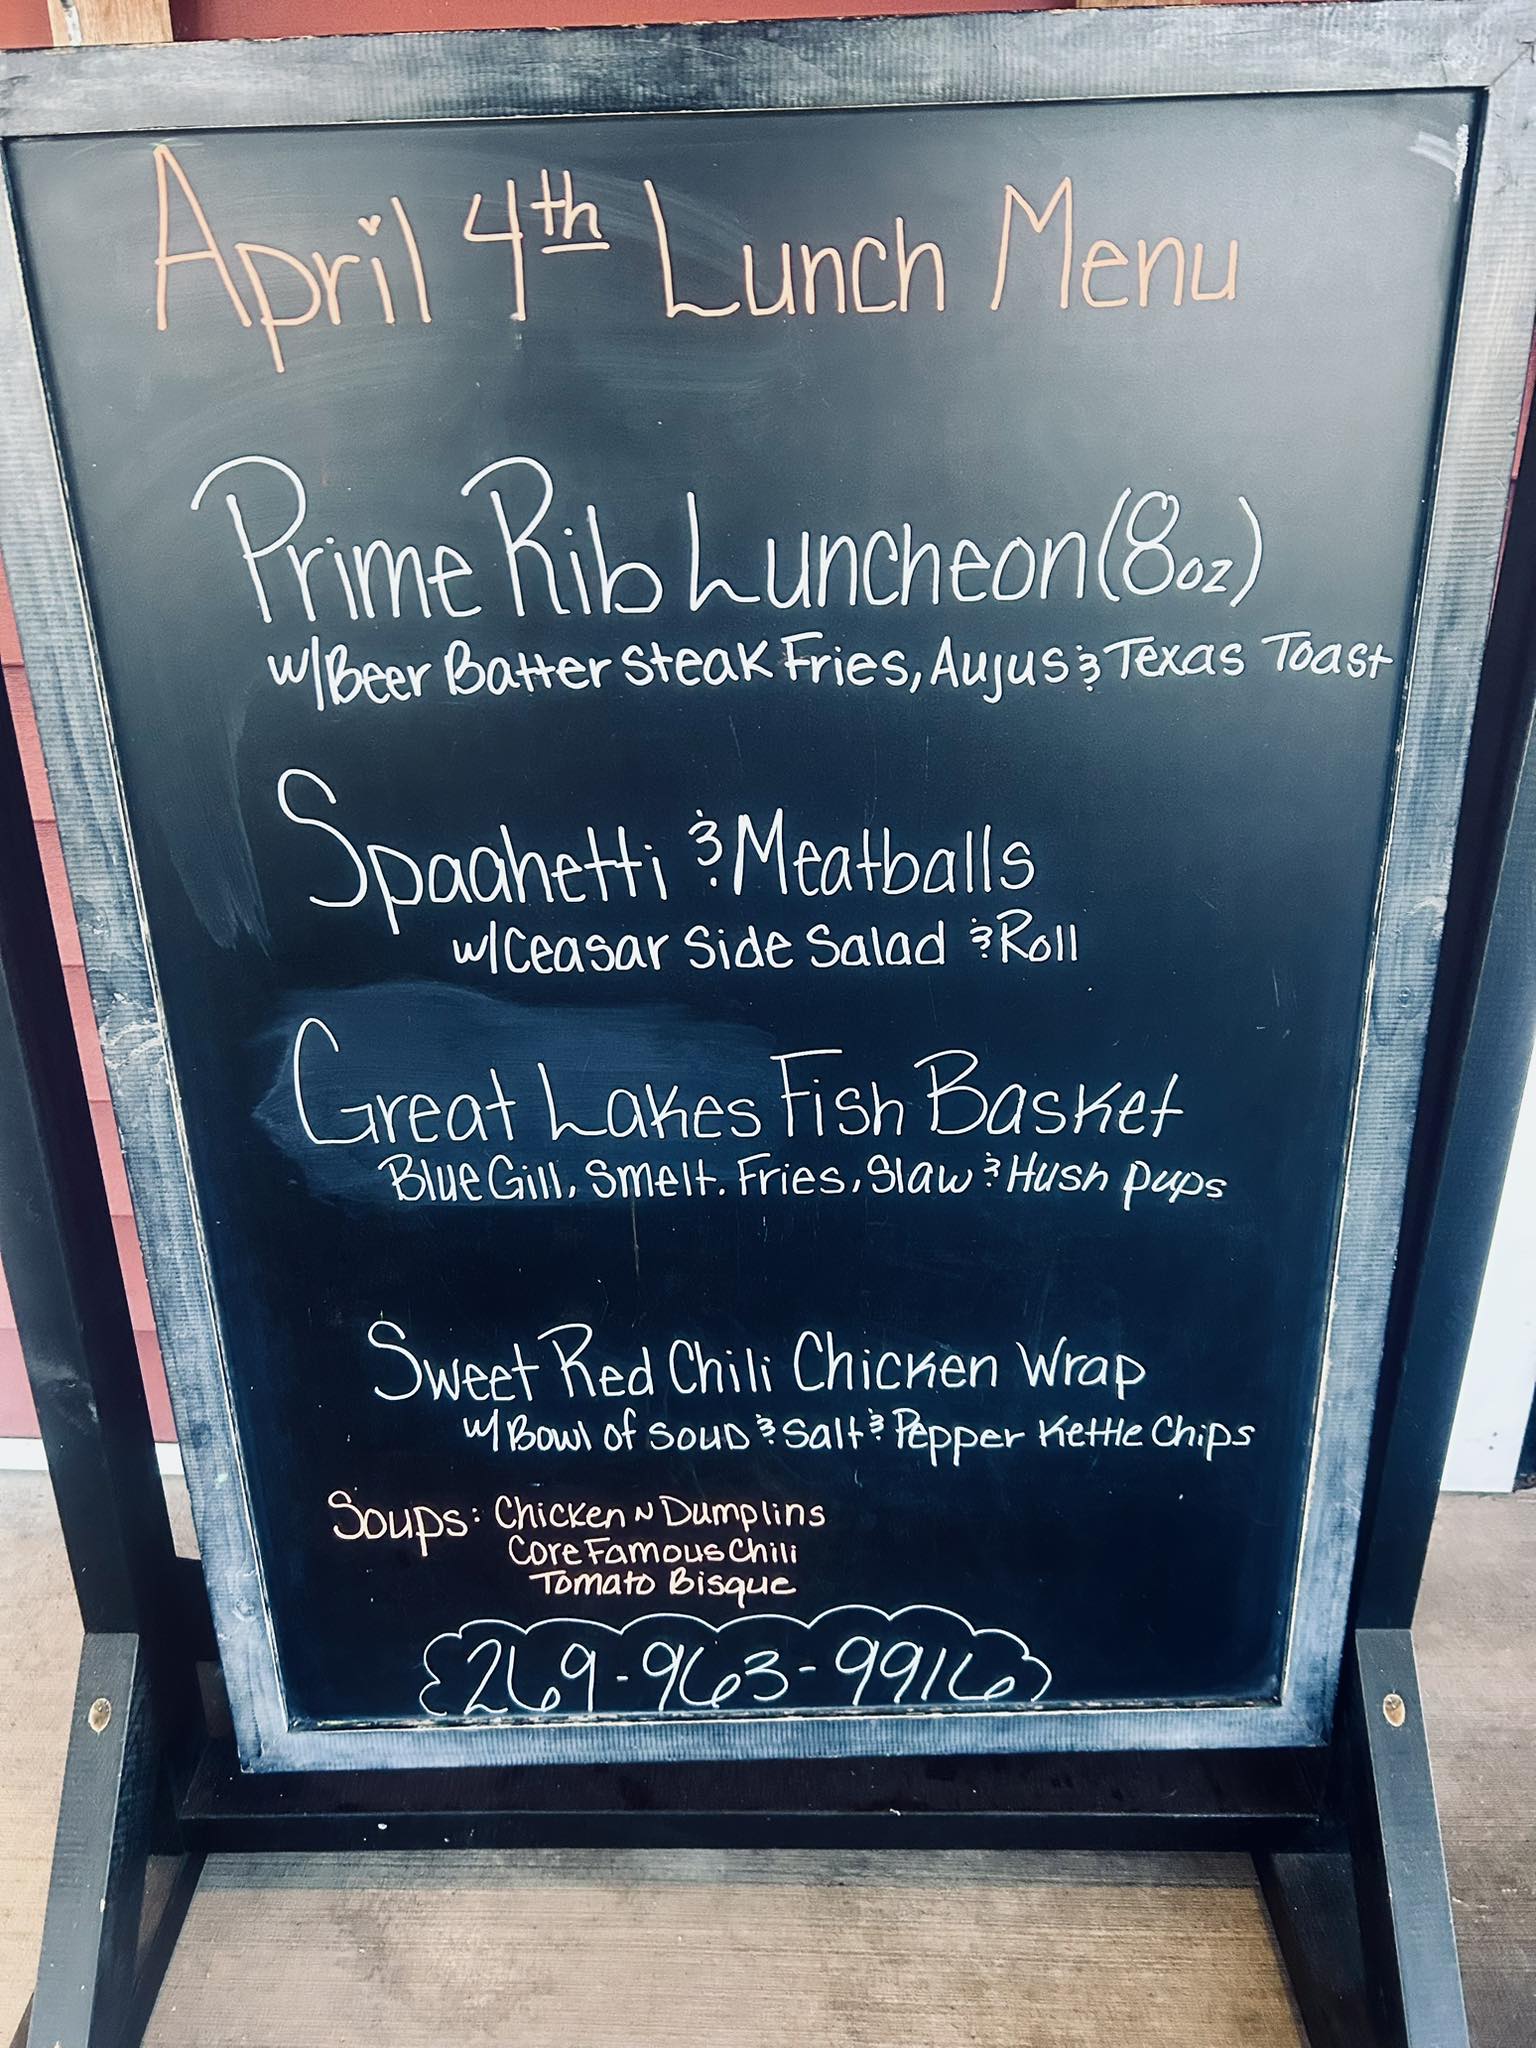 April 4th Lunch Menu
Prime Rib Luncheon (8oz)
w/Beer Batter Steak Fries, Aujus & Texas Toast
Spaghetti & Meatballs
w/Ceasar Side Salad & Roll
Great Lakes Fish Basket
Blue Gill, Smelt. Fries, Slaw & Hush pups
Sweet Red Chili Chicken Wrap
w/Bowl of Soup & Salt & Pepper Kettle Chips
Soups: Chicken N Dumplins
Core Famous Chili
Tomato Bisque
269-963-9916